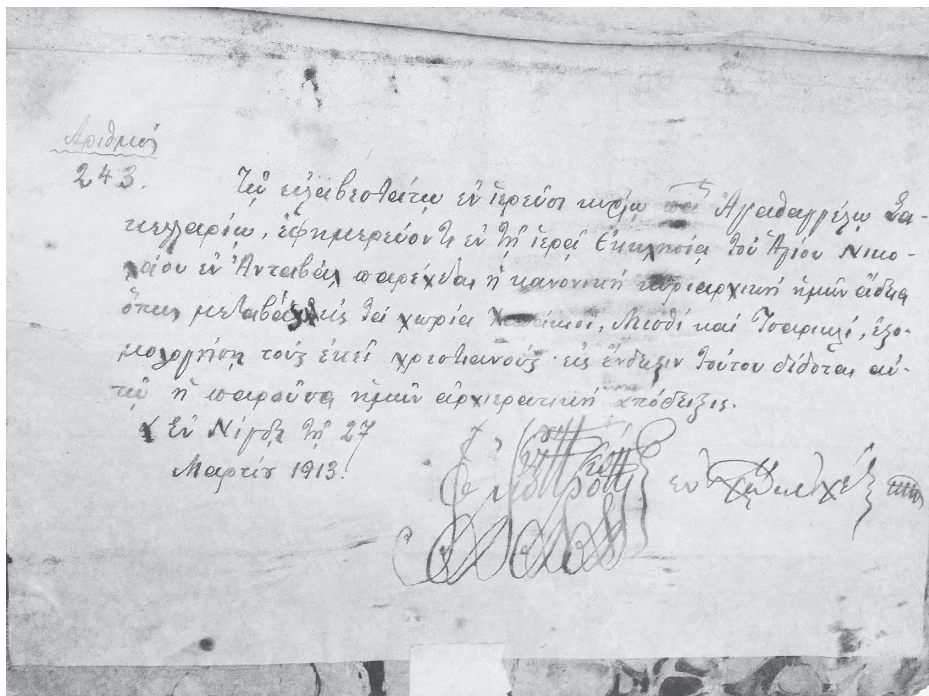 Ἀριθμὸς
243.
Τῷ εὐλαβεστάτῳ ἐν ἱερεῦσι κυρίῳ παπᾶ Ἀγαθαγγέλῳ Σα-
κελλαρίῳ, ἐφημερεύοντι ἐν τῇ ἱερᾷ Ἐκκλησίᾳ τοῦ Ἁγίου Νικο-
λάου ἐν Ἀνταβὰλ παρέχεται ἡ κανονικὴ κυριαρχικὴ ἡμῶν ἄδεια
ὅπως μεταβὰς εἰς τὰ χωρία, Μισθὶ καὶ Τσαρικλί, ἐξο-
μολογήσῃ τοὺς ἐκεῖ χριστιανούς· εἰς ἔνδειξιν τούτου δίδοται αὐ-
τῷ ἡ παροῦσα ἡμῶν ἀρχιερατικὴ ἀπόδειξις.
Ἐν Νίγδῃ τῇ 27
Μαρτίου 1913.